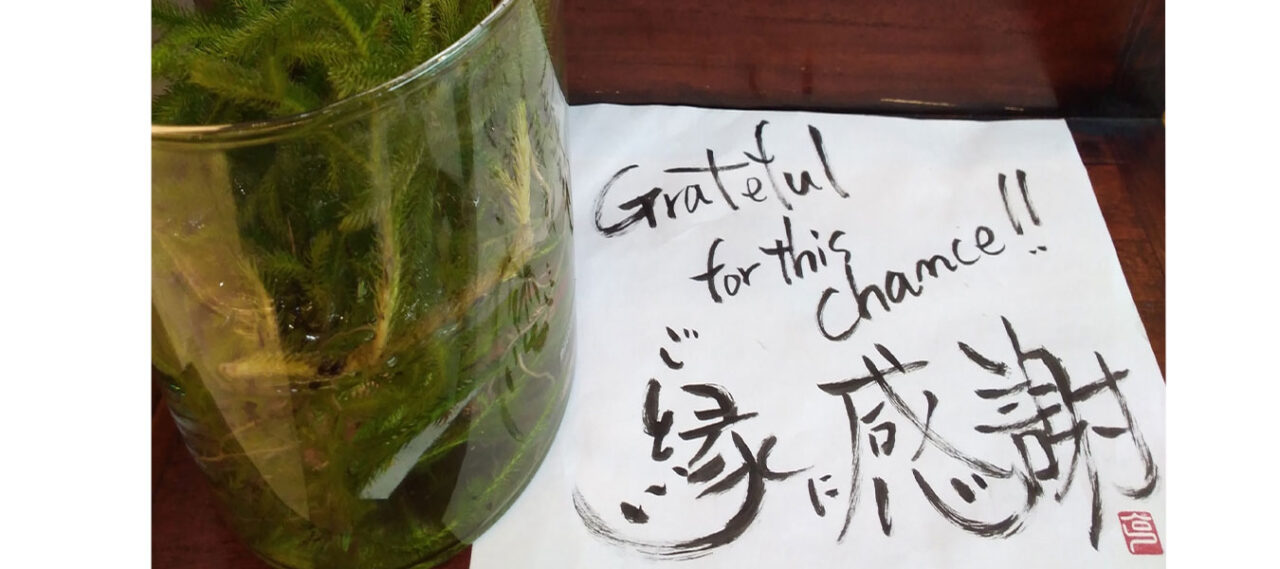 Grateful
for this
chance!!
ご縁に感謝